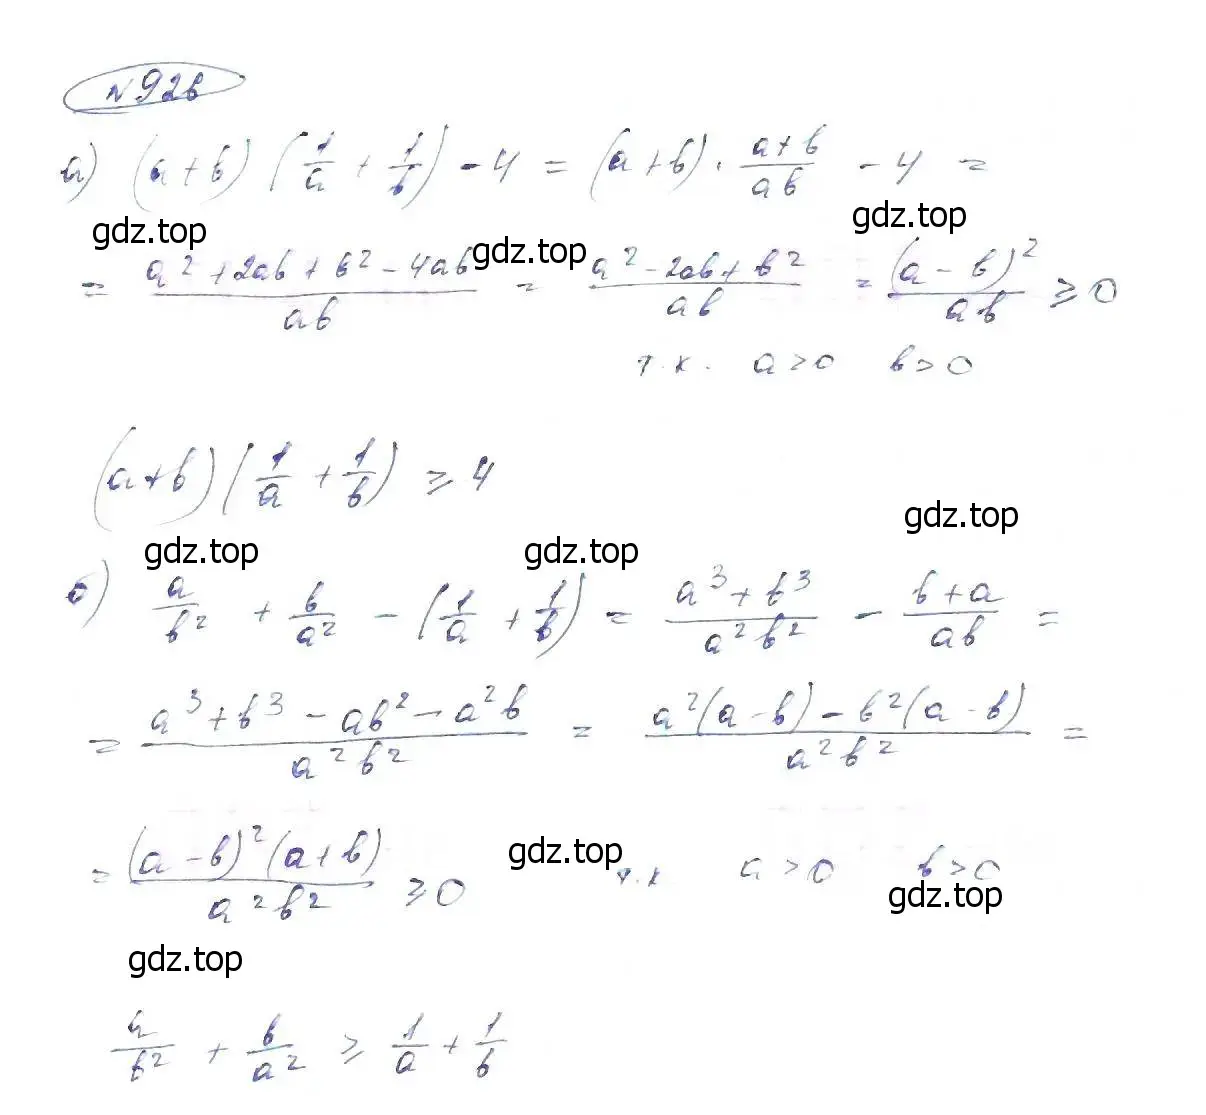 № 926
а) (a+b) (1/a + 1/b) - 4 = (a+b) · (a+b)/(ab) - 4 =
gdz.top gdz.top gdz.top
= (a² + 2ab + b² - 4ab)/(ab) = (a² - 2ab + b²)/(ab) = (a - b)²/(ab) ≥ 0
т.к. a > 0 b > 0
(a+b) (1/a + 1/b) ≥ 4
gdz.top gdz.top gdz.top
б) a/b² + b/a² - (1/a + 1/b) = (a³ + b³)/(a²b²) - (b+a)/(ab) =
= (a³ + b³ - ab² - a²b)/(a²b²) = (a²(a-b) - b²(a-b))/(a²b²) =
= ((a-b)²(a+b))/(a²b²) ≥ 0 gdz.top т.к a > 0 b > 0
gdz.top gdz.top
a/b² + b/a² ≥ 1/a + 1/b